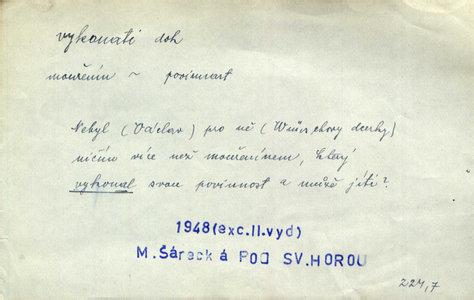 vykonati dok
mouřenín ~ povinnost
Nebyl (Václav) pro ně (Wünschovy dcerky)
ničím více než mouřenínem, který
vykonal svou povinnost a může jíti?
1948(exc.II.vyd)
M.Šárecká POD SV.HOROU
224,7